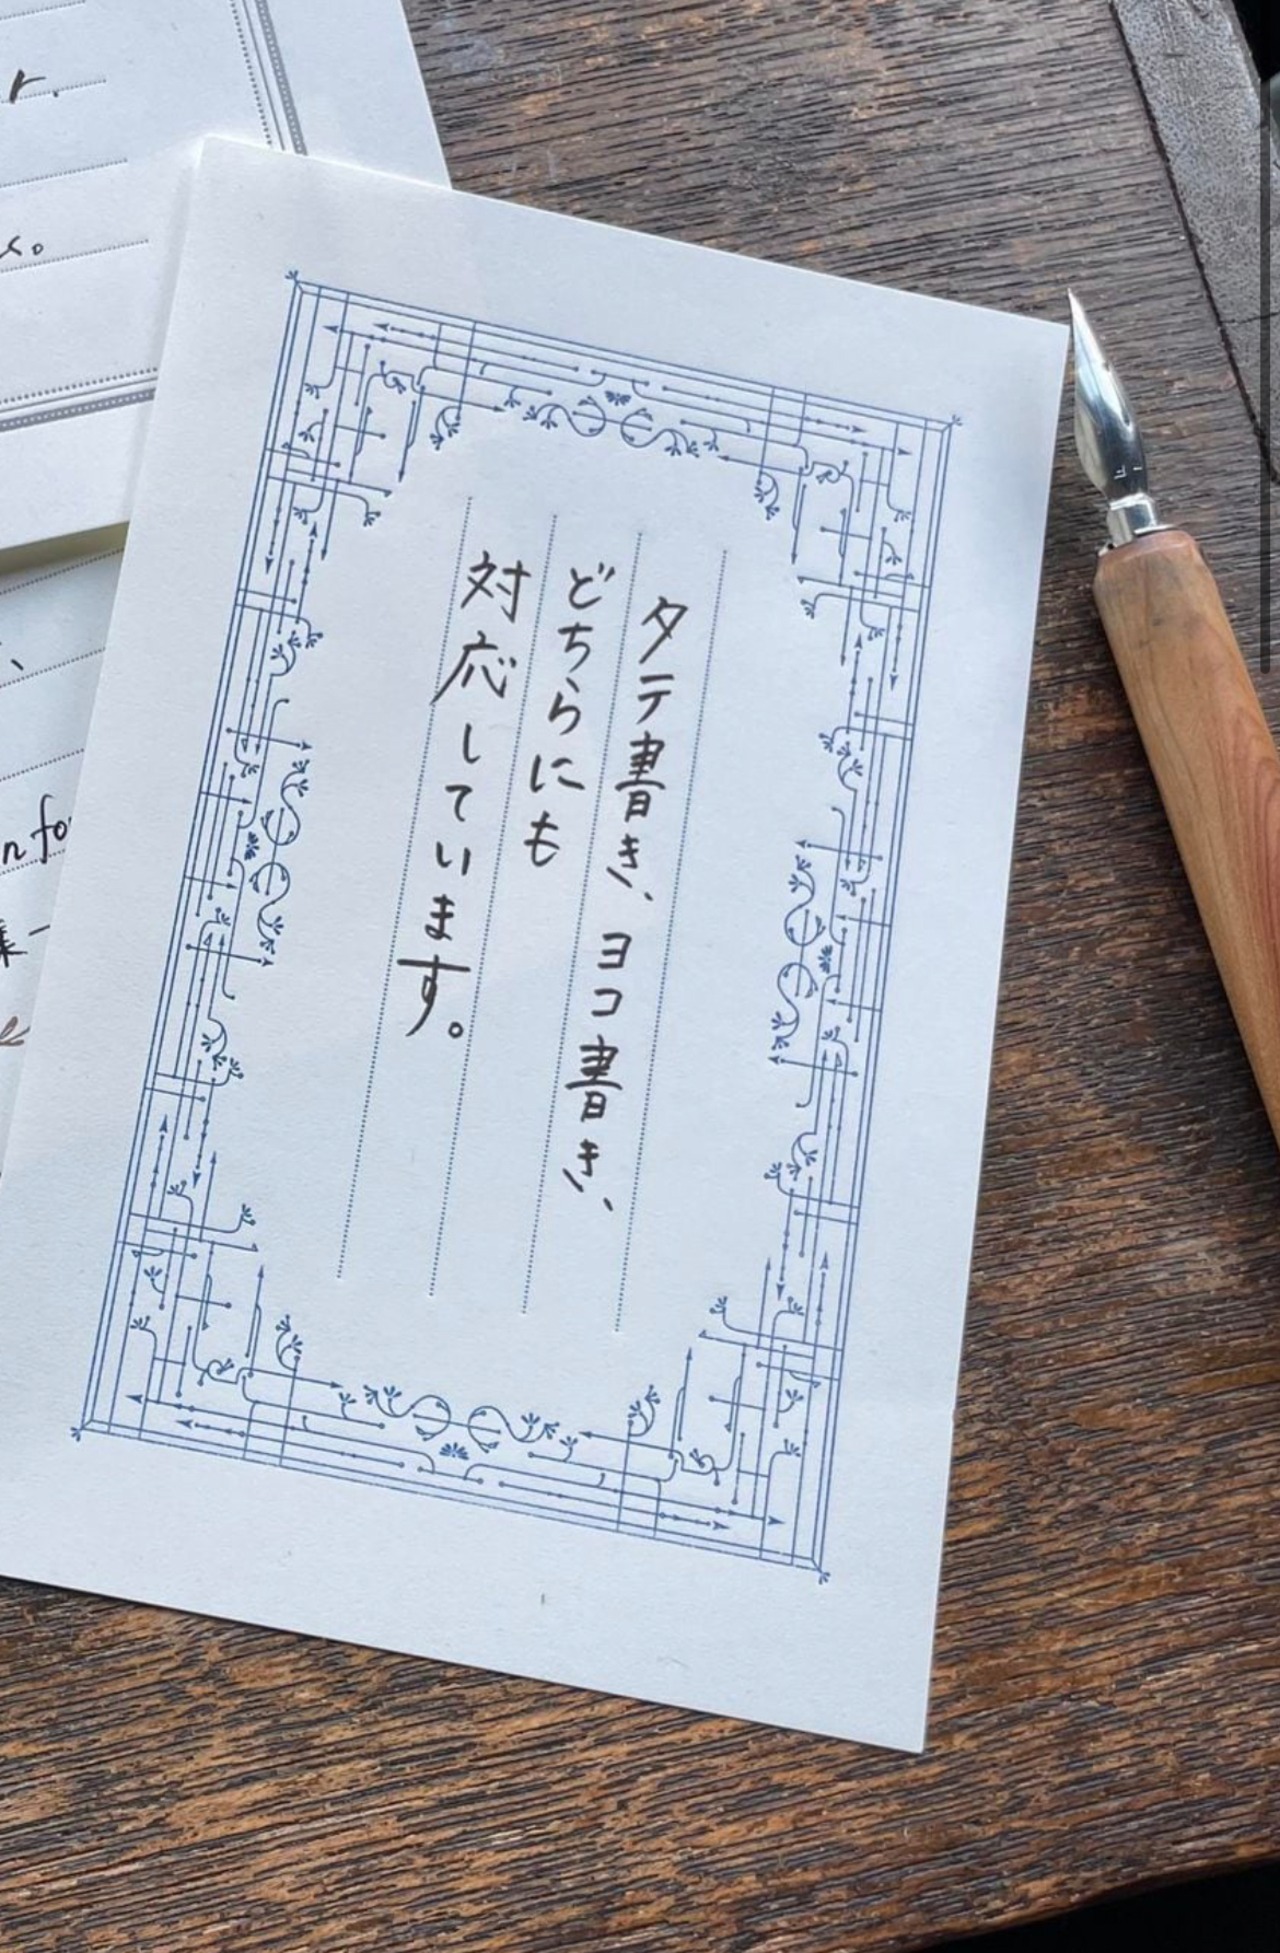 タテ書き、ヨコ書き、
どちらにも
対応しています。
r.
n fo
集